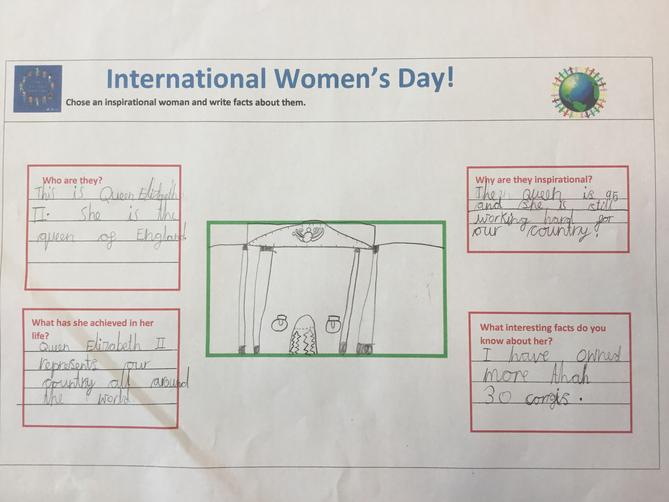 International Women's Day!
Chose an inspirational woman and write facts about them.
Who are they?
This is Queen Elizabeth
II. She is the
queen of England
Why are they inspirational?
The Queen is 95
and she is still
working hard for
our country!
What has she achieved in her
life?
Queen Elizabeth II
represents our
country all around
the world
What interesting facts do you
know about her?
I have owned
more than
30 corgis.